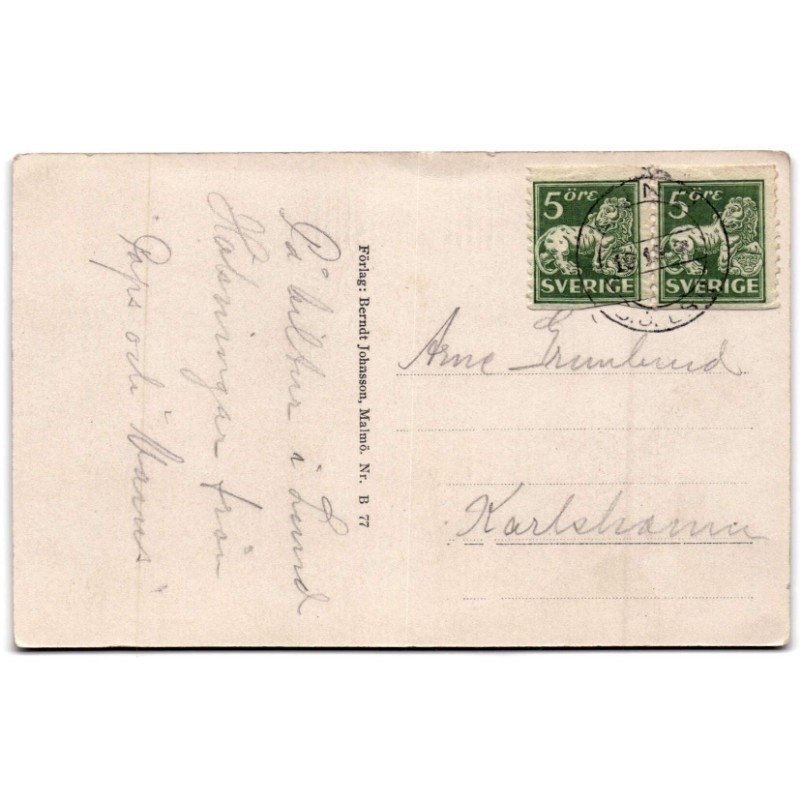 På biltur i Lund
Hälsningar från
"Paps och "Mams"
Förlag: Berndt Johnsson, Malmö. Nr. B 77
5 ÖRE
SVERIGE
5 ÖRE
SVERIGE
Arne Grunlund
Karlshamn